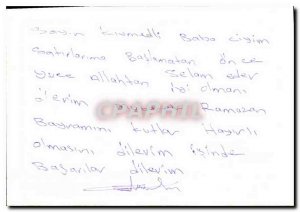 Sayın Kıymetli Baba cıyim
Satırlarıma Başlamatan önce
yuce Allahtan Selam eder
iyi olmanı
dilerim Ramazan
Bayramını kutlar Hayırlı
olmasını dilerim işinde
Başarılar dilerim
CPAPHIL